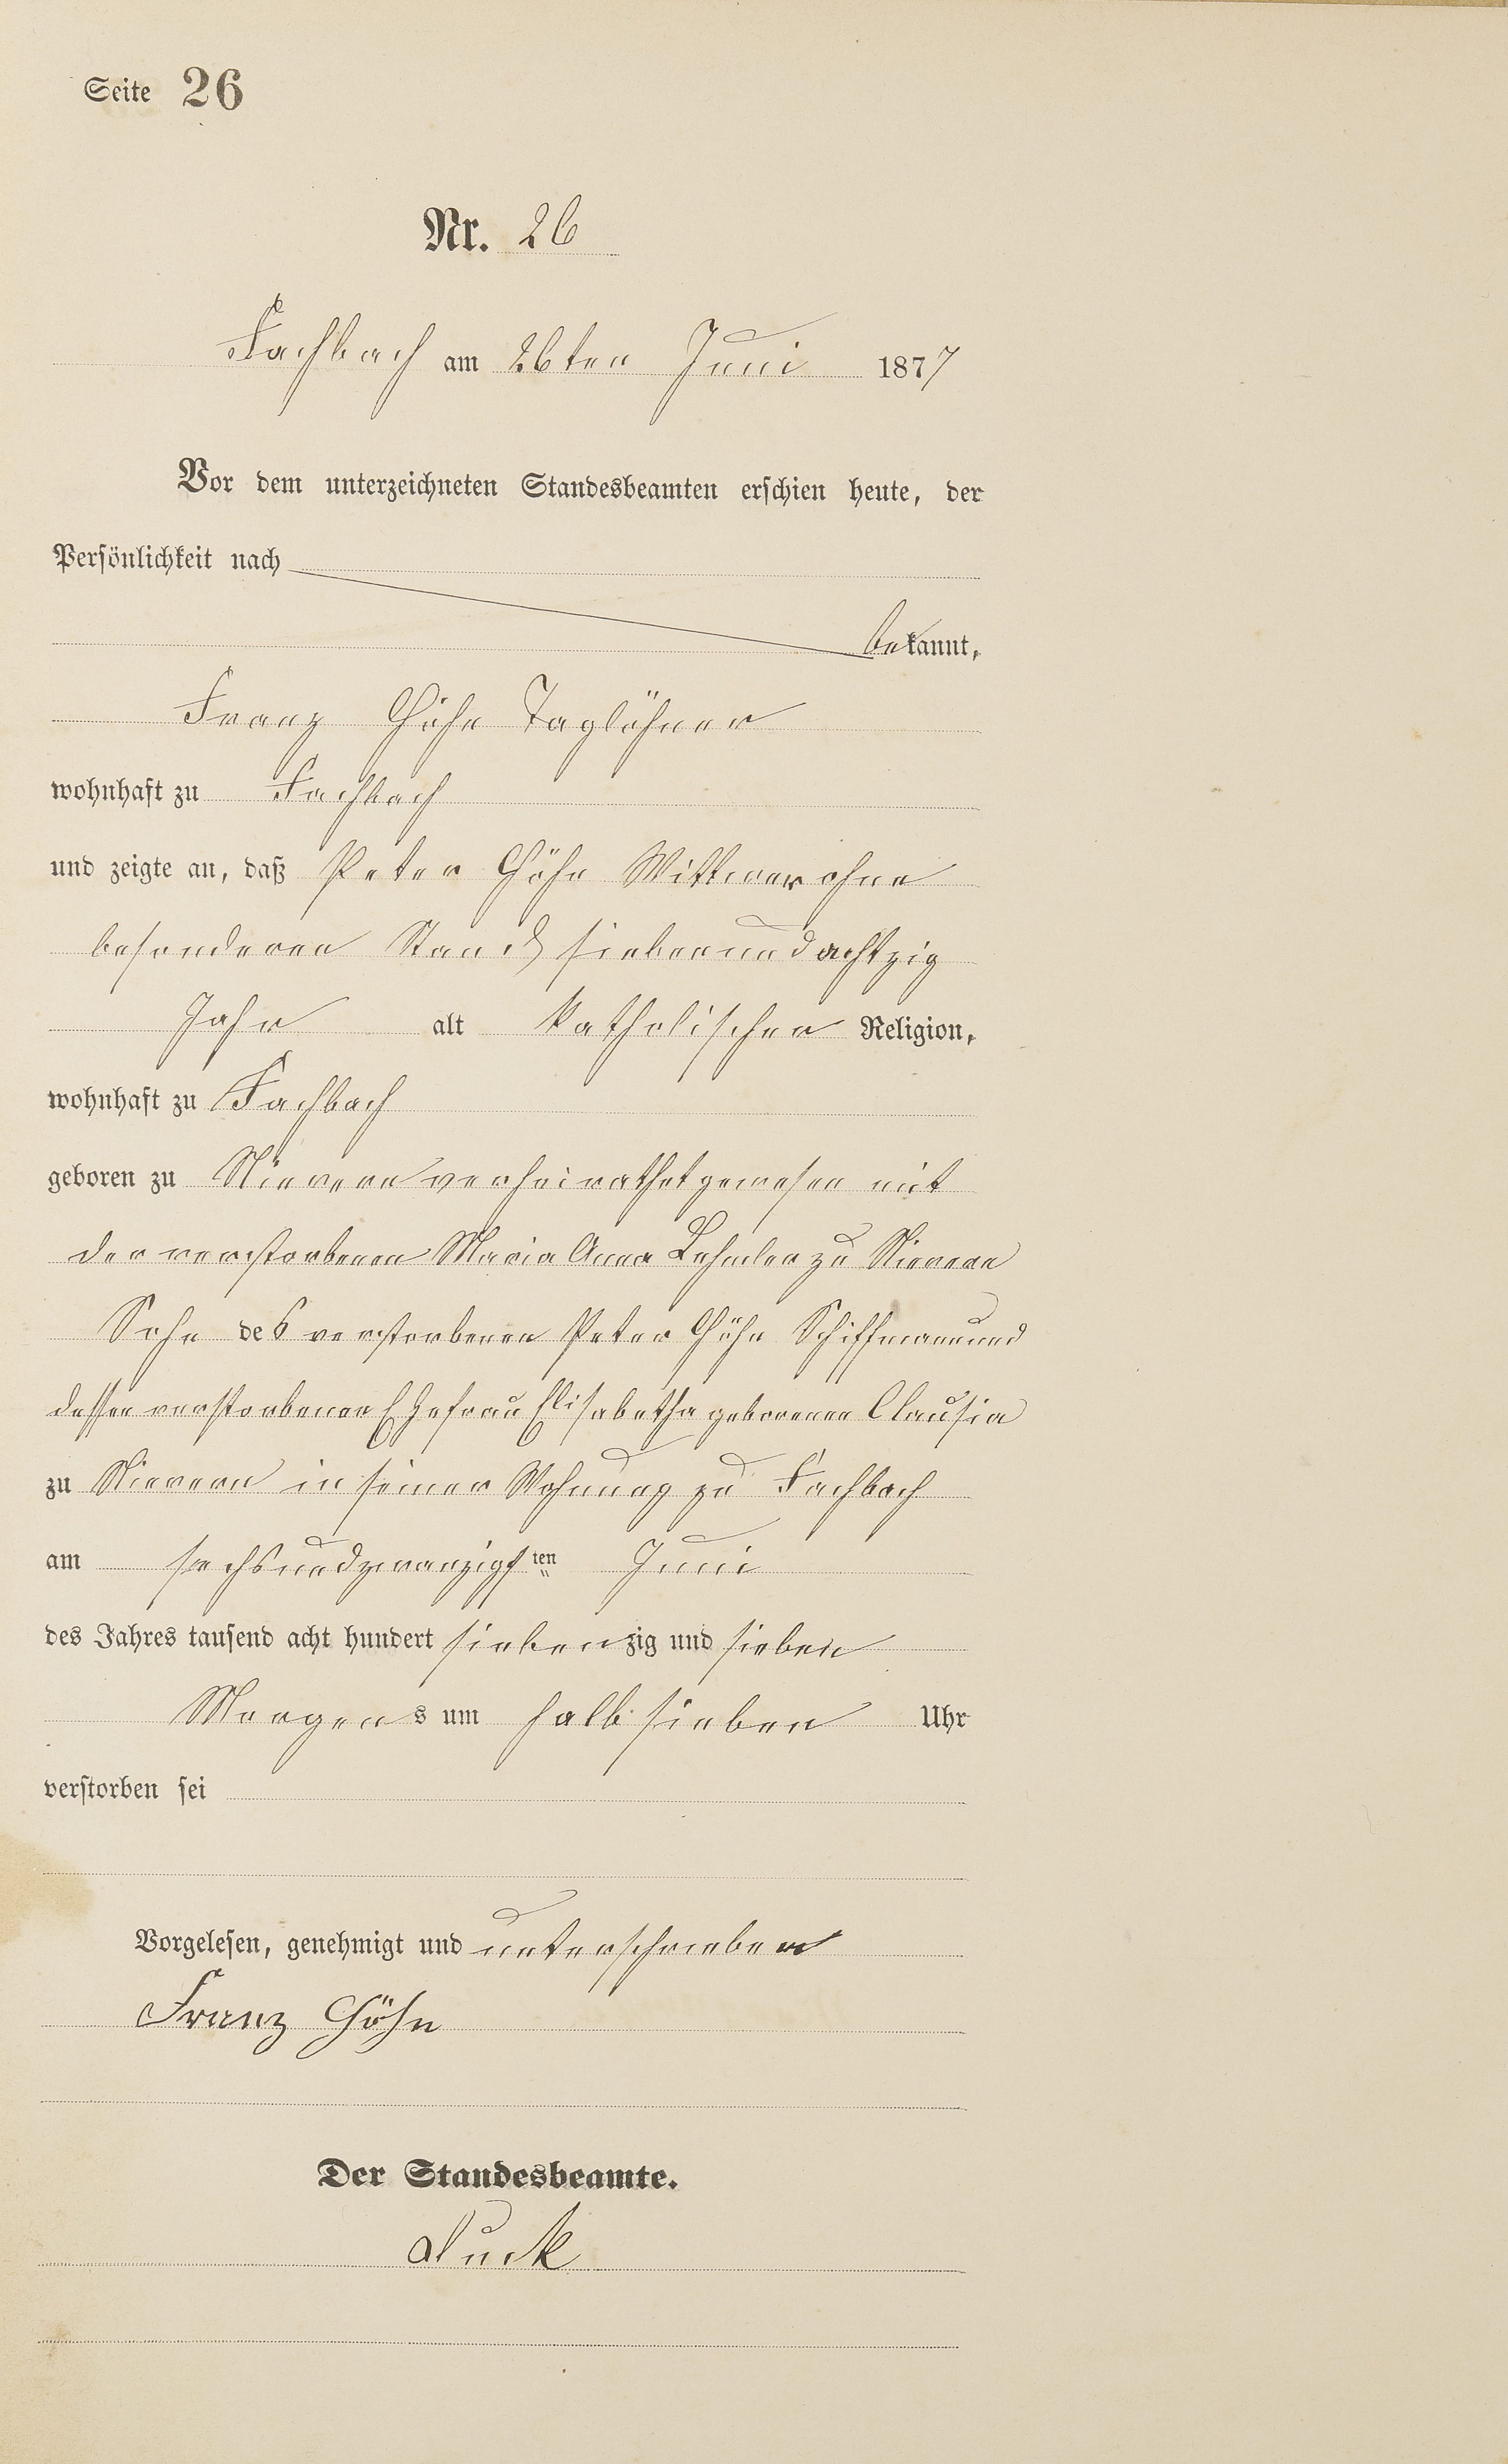 Seite 26
Nr. 26
Fachbach am 26ten Juni 1877
Vor dem unterzeichneten Standesbeamten erschien heute, der
Persönlichkeit nach
bekannt,
Franz Höhn Taglöhner
wohnhaft zu Fachbach
und zeigte an, daß Peter Höhn Wittwer ohne
besonderen Stand siebenundachtzig
Jahr alt katholischer Religion,
wohnhaft zu Fachbach
geboren zu Nievern verheirathet gewesen mit
der verstorbenen Maria Anna zu Nievern
Sohn des verstorbenen Peter Höhn Schiffmann und
dessen verstorbenen Ehefrau Elisabetha geborenen
zu Nievern in seiner Wohnung zu Fachbach
am sechsundzwanzigsten Juni
des Jahres tausend acht hundert siebenzig und sieben
Morgens um halb sieben Uhr
verstorben sei
Vorgelesen, genehmigt und unterschrieben
Franz Höhn
Der Standesbeamte.